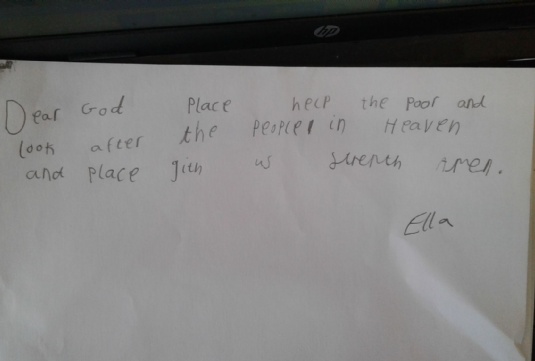 hp
Dear God Place help the poor and
look after the people in Heaven
and place gith us strength Amen.
Ella